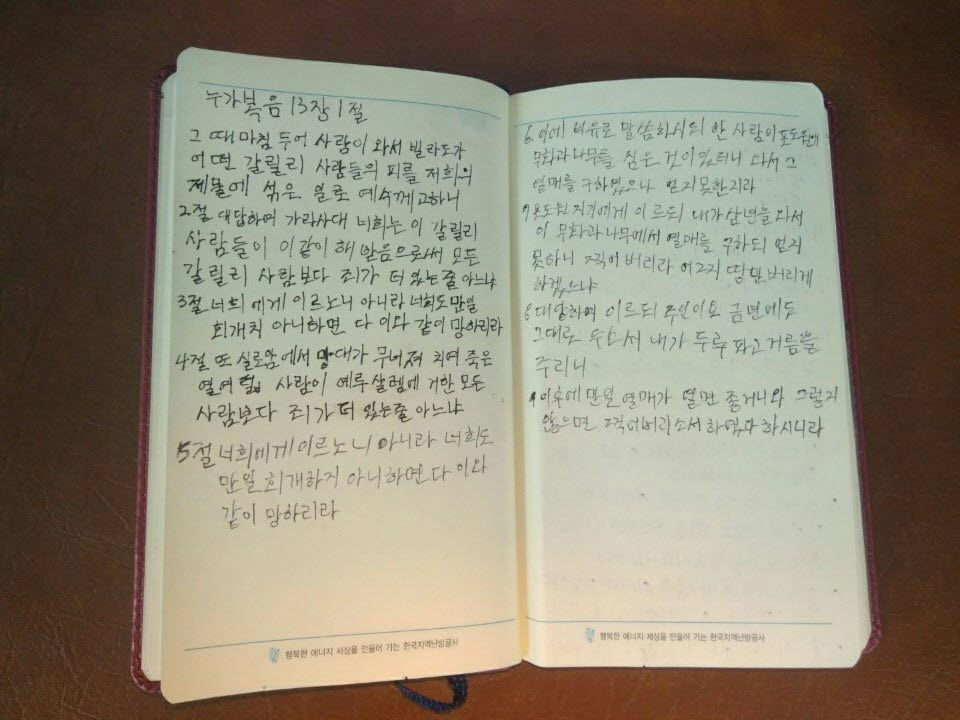 누가복음 13장 1절
그 때 마침 두어 사람이 와서 빌라도가
어떤 갈릴리 사람들의 피를 저희의
제물에 섞은 일로 예수께 고하니
2절 대답하여 가라사대 너희는 이 갈릴리
사람들이 이같이 해 받음으로써 모든
갈릴리 사람보다 죄가 더 있는줄 아느냐
3절 너희에게 이르노니 아니라 너희도 만일
회개치 아니하면 다 이와 같이 망하리라
4절 또 실로암에서 망대가 무너져 치여 죽은
열여덟 사람이 예루살렘에 거한 모든
사람보다 죄가 더 있는줄 아느냐
5절 너희에게 이르노니 아니라 너희도
만일 회개하지 아니하면 다 이와
같이 망하리라
행복한 에너지 세상을 만들어 가는 한국지역난방공사
6 이에 비유로 말씀하시되 한 사람이 포도원에
무화과나무를 심은 것이 있더니 와서 그
열매를 구하였으나 얻지 못한지라
7 포도원지기에게 이르되 내가 삼년을 와서
이 무화과나무에서 열매를 구하되 얻지
못하니 찍어버리라 어찌 땅만 버리게
하겠느냐
8 대답하여 이르되 주인이요 금년에도
그대로 두소서 내가 두루 파고 거름을
주리니
9 이후에 만일 열매가 열면 좋거니와 그렇지
않으면 찍어버리소서 하였다 하시니라
행복한 에너지 세상을 만들어 가는 한국지역난방공사